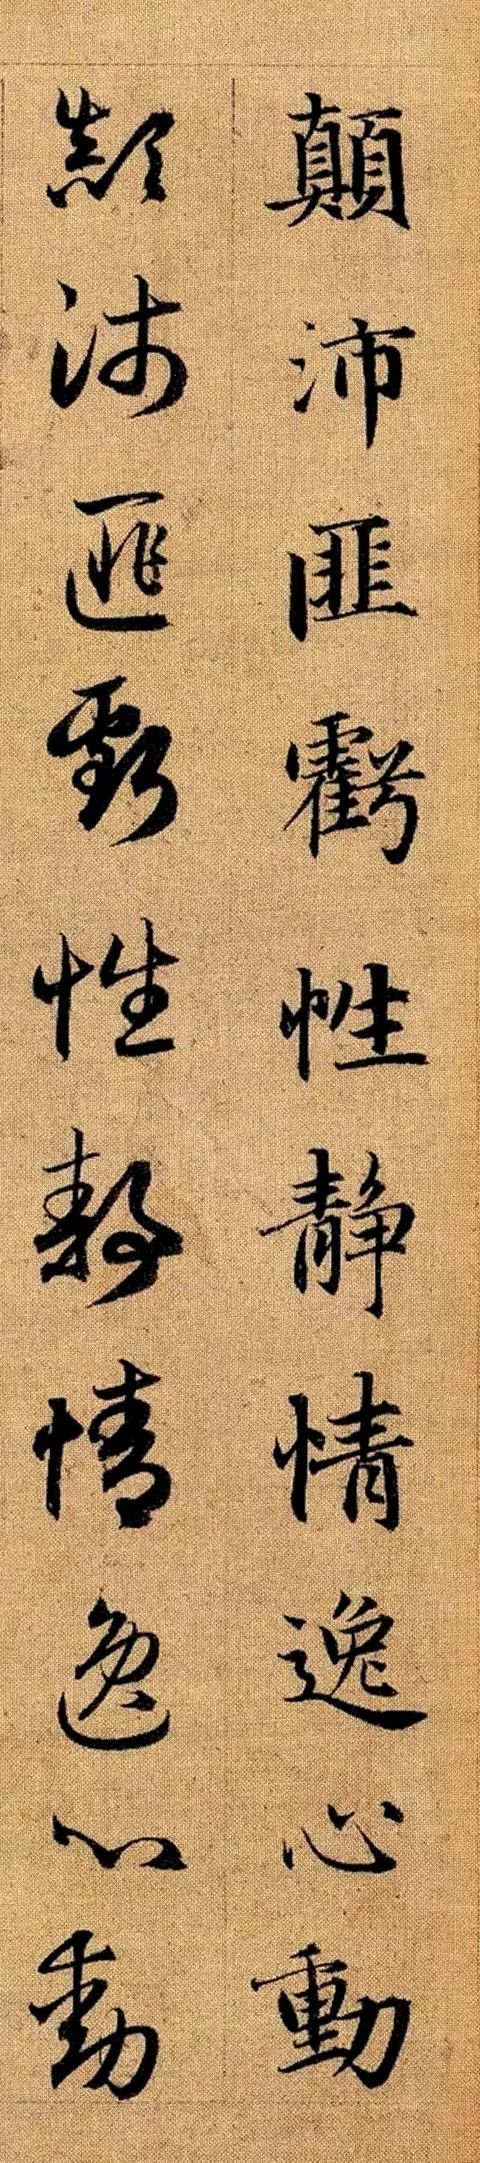 顛沛匪虧性静情逸心動
顛沛匪虧性静情逸心動